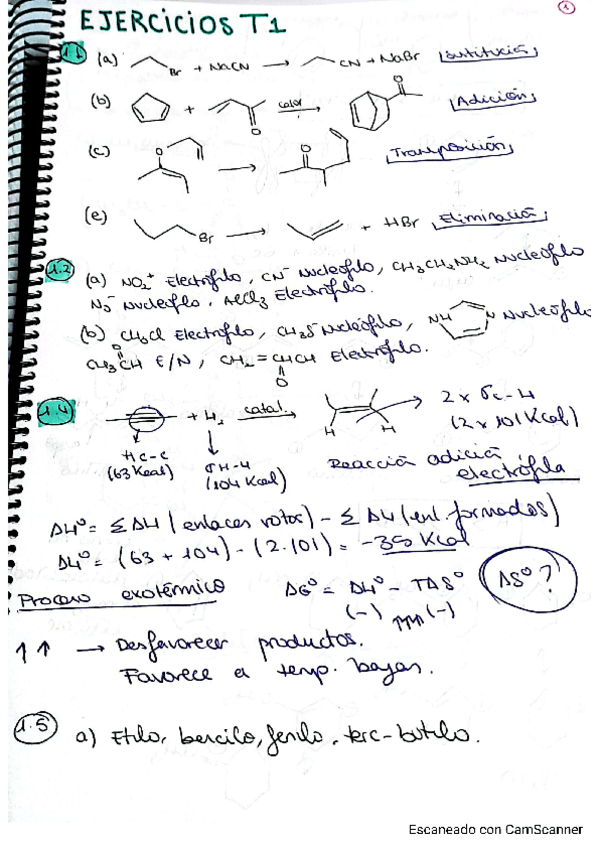 1
EJERCICIOS T1
1.1 (a) Br + NaCN → CN + NaBr Sustitución
(b) + O calor → O Adición
(c) O → O Transposición
(e) Br → + HBr Eliminación
1.2 (a) NO₂⁺ Electrófilo, CN⁻ Nucleófilo, CH₃CH₂NH₂ Nucleófilo
N₃⁻ Nucleófilo, AlCl₃ Electrófilo.
(b) CH₃Cl Electrófilo, CH₃S⁻ Nucleófilo, NH N Nucleófilo
CH₃CH O E/N, CH₂=CHCH O Electrófilo.
1.4 + H₂ catal. → H H 2 x σC-H
(2 x 101 Kcal)
πC-C
(63 Kcal)
σH-H
(104 Kcal)
Reacción adición
electrófila
ΔHº = Σ ΔH (enlaces rotos) - Σ ΔH (enl. formados)
ΔHº = (63 + 104) - (2·101) = -35 Kcal
Proceso exotérmico ΔGº = ΔHº - TΔSº ΔSº?
(-) (-)
↑↑ → Desfavorecer productos.
Favorece a temp. bajas.
1.5 a) Etilo, bencilo, fenilo, terc-butilo.
Escaneado con CamScanner